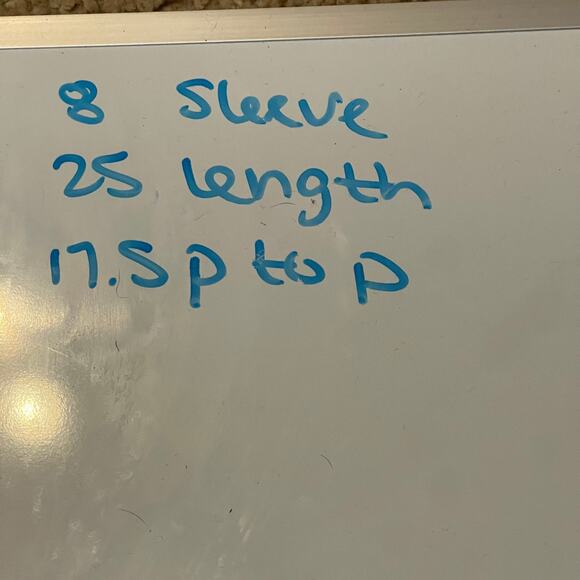 8 Sleeve
25 length
17.5 p to p